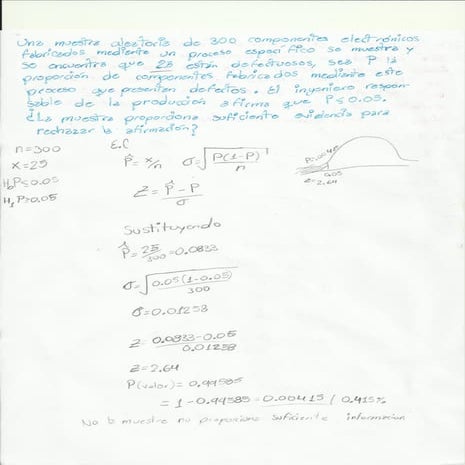 Una muestra aleatoria de 300 componentes electrónicos
fabricados mediante un proceso específico se muestra y
se encuentra que 25 están defectuosos, sea P la
proporción de componentes fabricados mediante este
proceso que presenten defectos. El ingeniero respon-
sable de la producción afirma que P≤0.05.
¿La muestra proporciona suficiente evidencia para
rechazar la afirmación?
n=300
x=25
H₀P≤0.05
H₁P>0.05
E.C
P̂=x/n σ=√P(1-P)/n
Z=P̂-P/σ
Sustituyendo
P̂=25/300=0.0833
σ=√0.05(1-0.05)/300
σ=0.01258
Z=0.0833-0.05/0.01258
Z=2.64
P(valor)=0.99585
=1-0.99585=0.00415/0.415%
No la muestra no proporciona suficiente informacion
0.05
Z=2.64